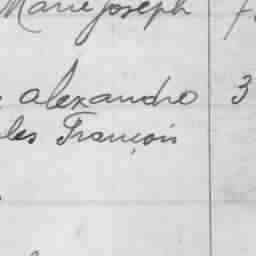 Marie Joseph
alexandre 3
les François